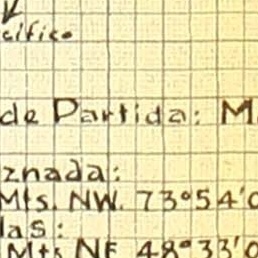 cífico
de Partida: M
znada:
Mts. NW. 73°54'0
las:
Mts NE 48°33'0